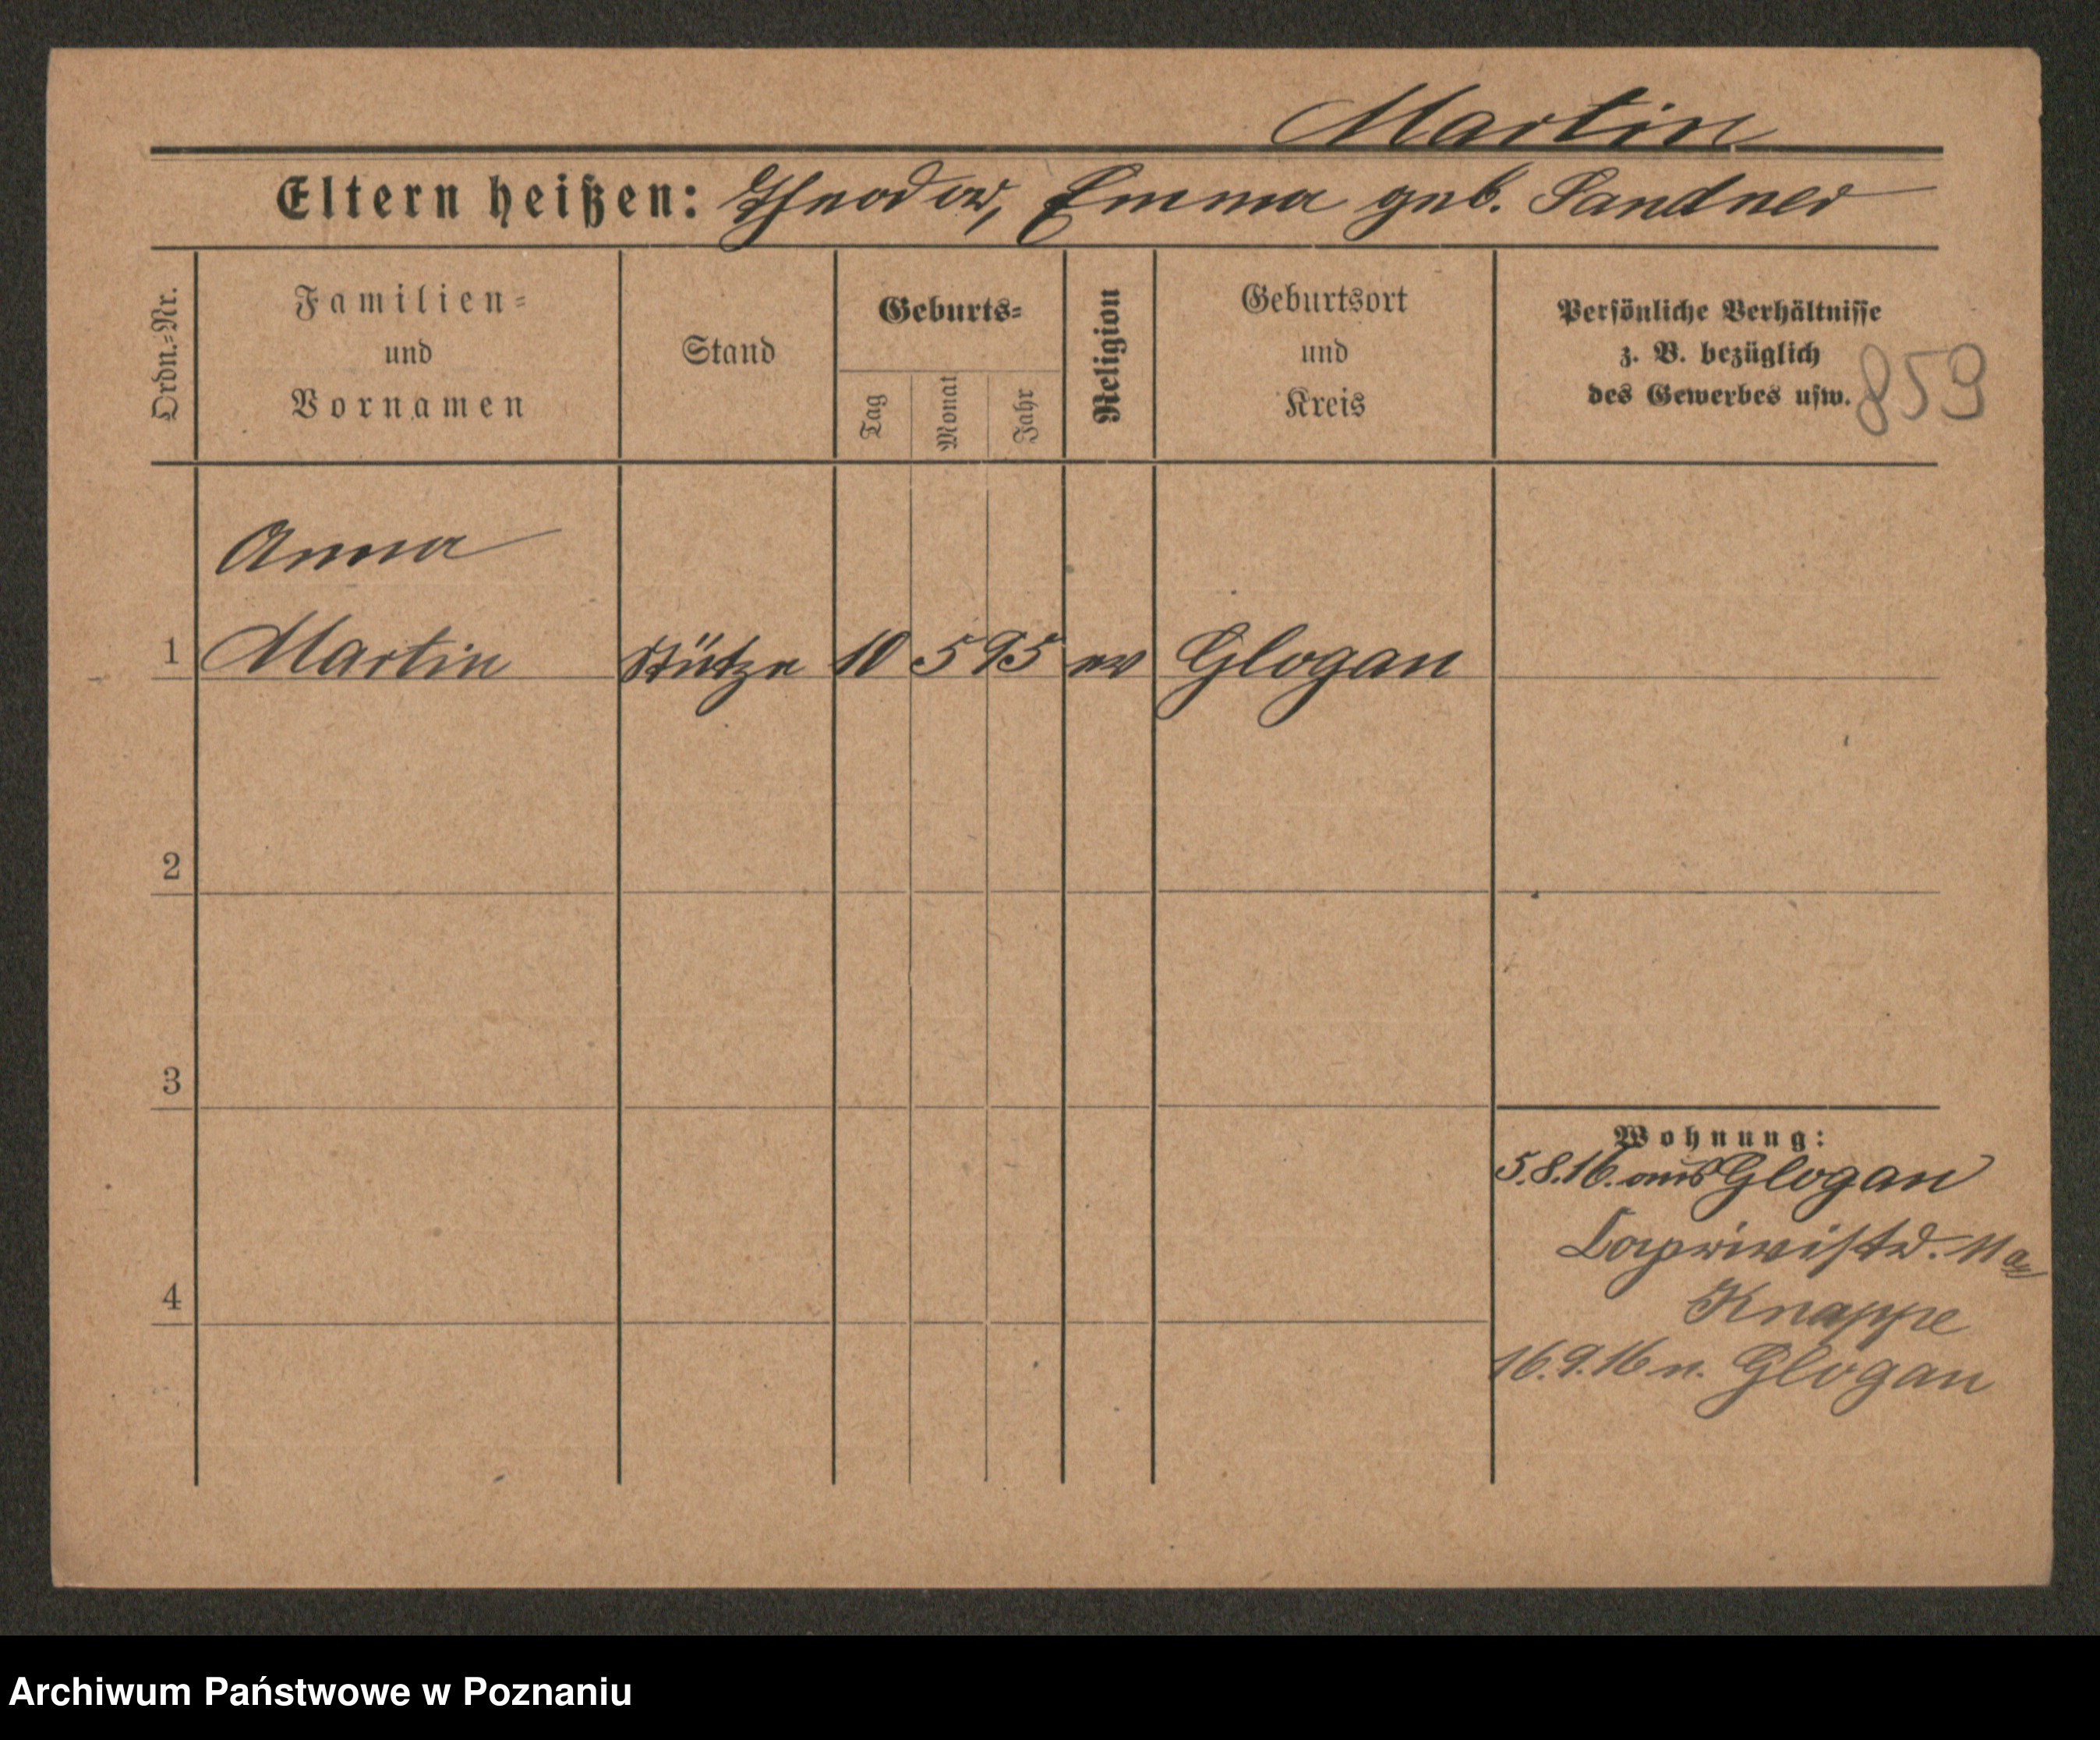 Martin
Eltern heißen: Theodor, Emma geb. Sandner
Ordn.=Nr.
Familien=
und
Vornamen
Stand
Geburts=
Tag
Monat
Jahr
Religion
Geburtsort
und
Kreis
Persönliche Verhältnisse
z. B. bezüglich
des Gewerbes usw.
859
Anna
1 Martin Stütze 10 5 95 ev Glogau
2
3
4
Wohnung:
5.8.16. aus Glogau
Caprivistr. 11a
Knappe
16.9.16 n. Glogau
Archiwum Państwowe w Poznaniu